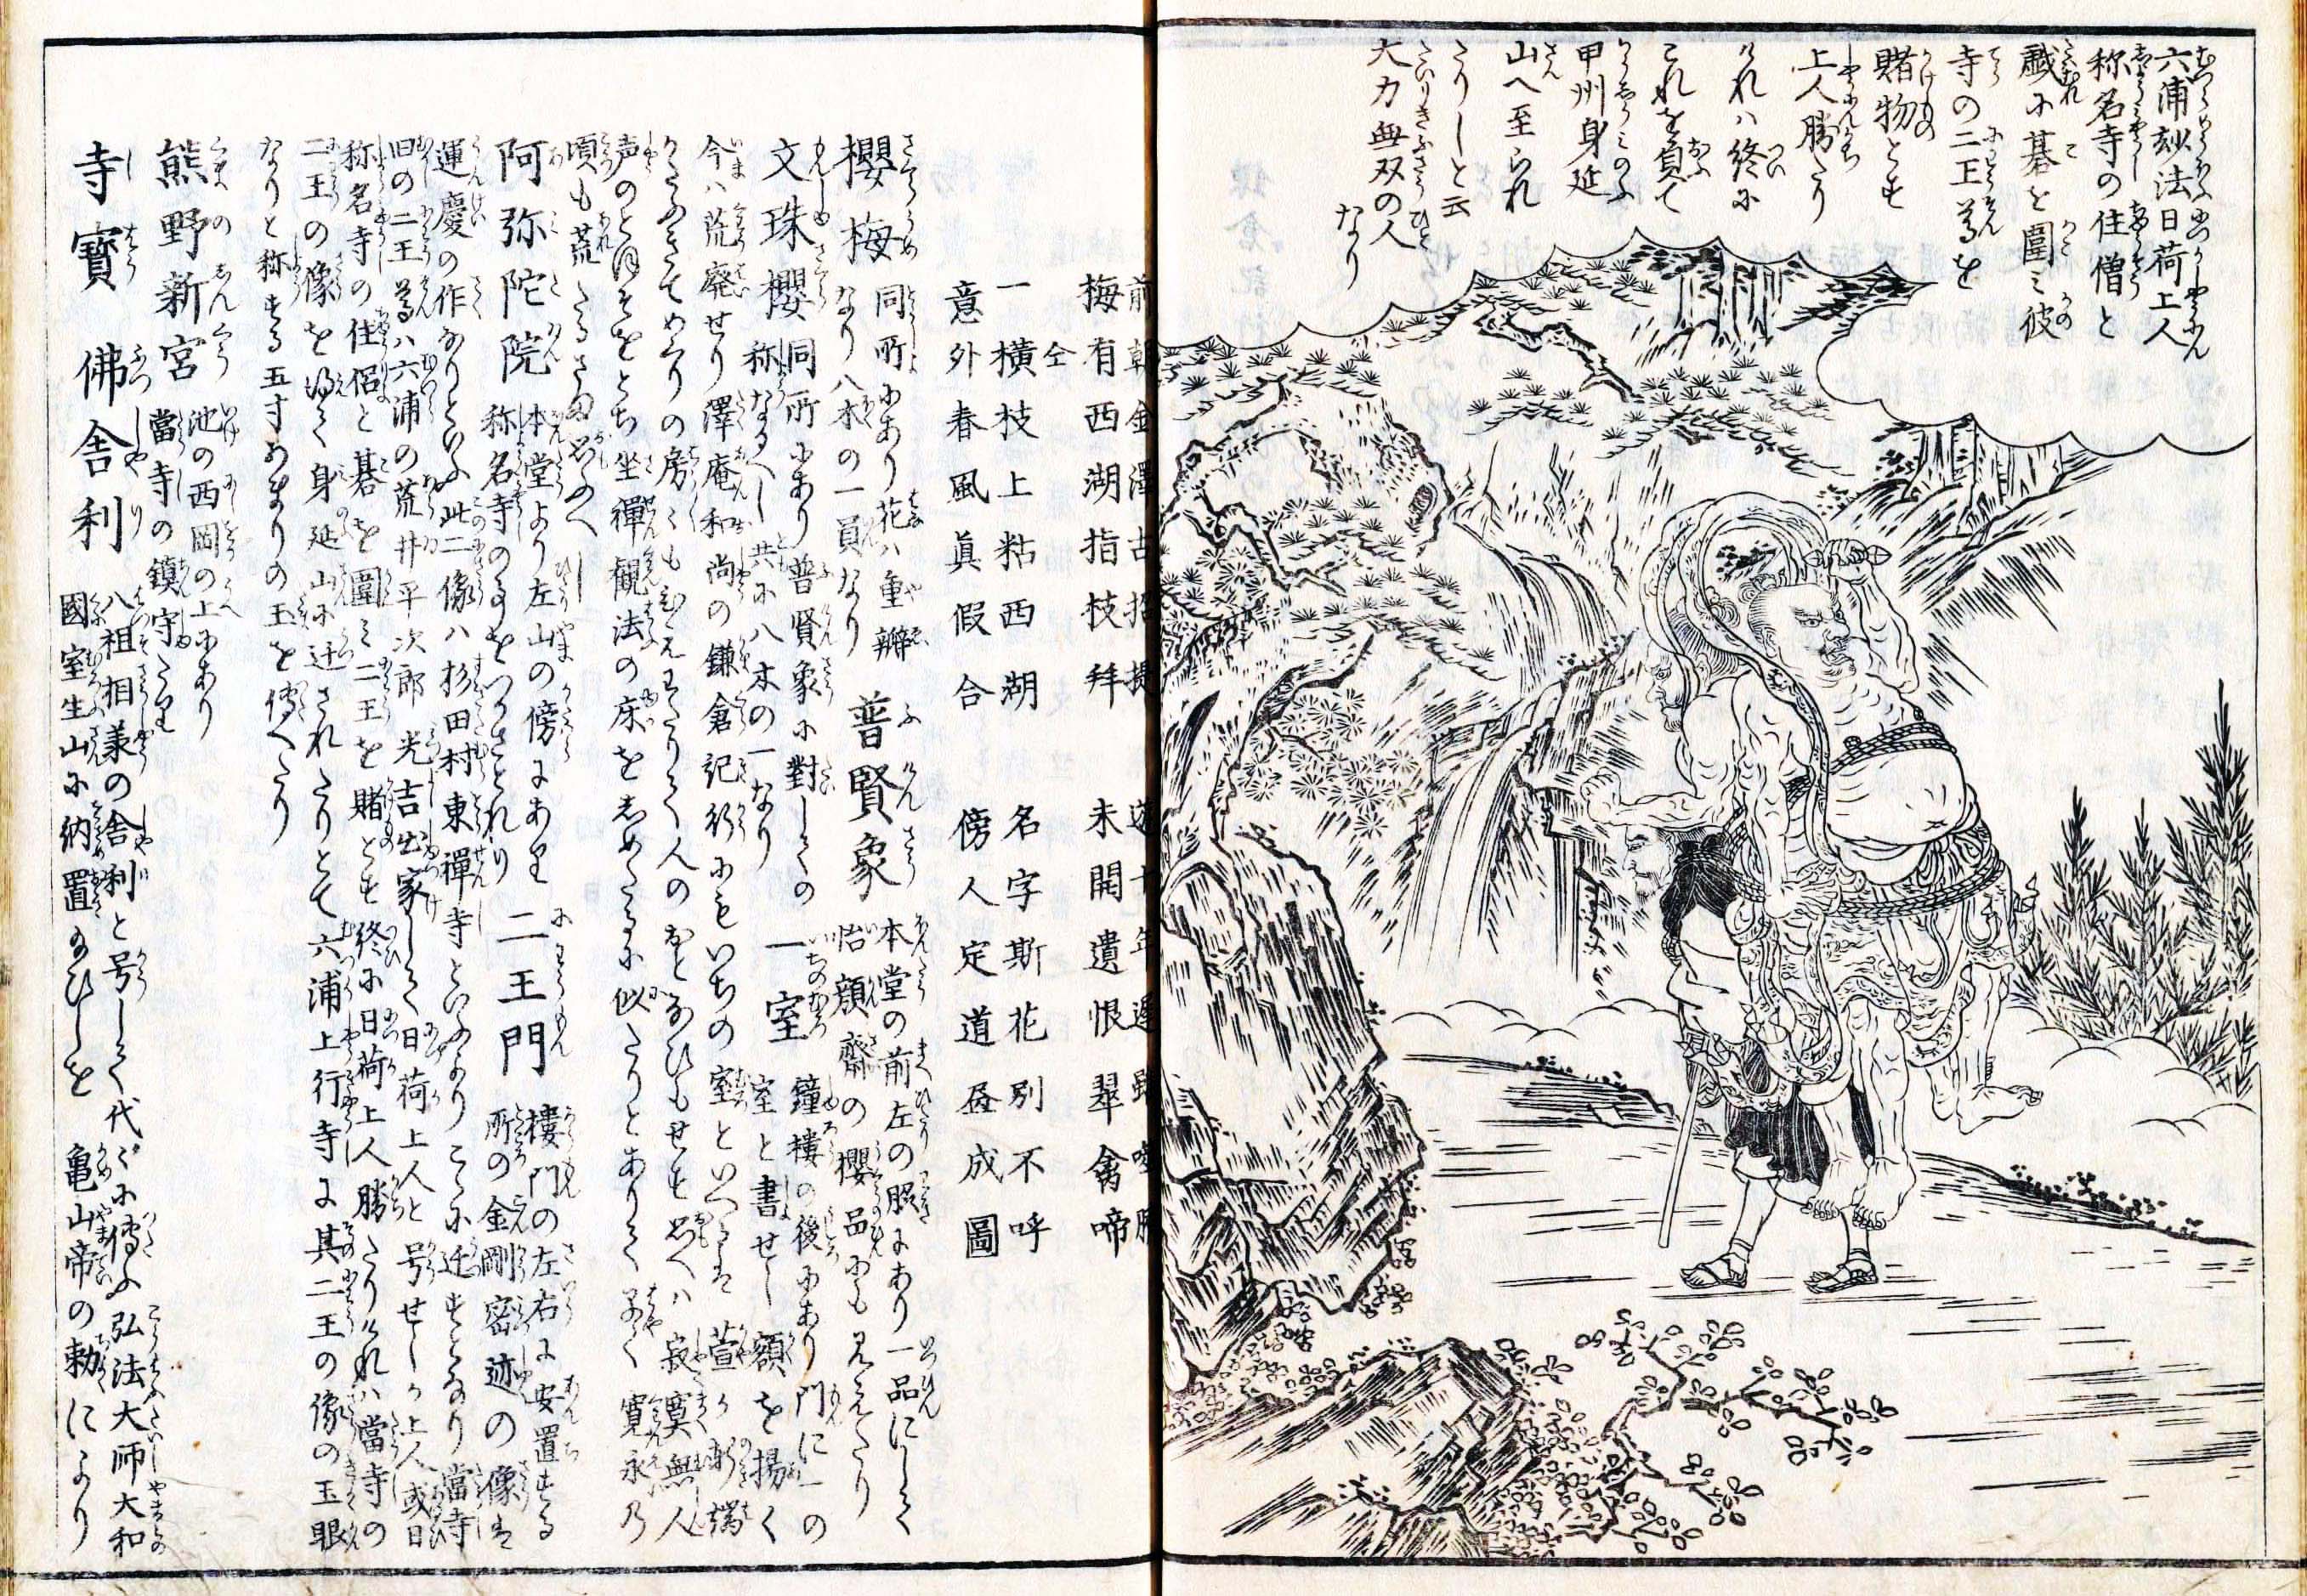 六浦妙法日荷上人
称名寺の住僧と
戯に碁を圍ミ彼
寺の二王尊を
賭物とす
上人勝たり
けれハ終に
これを負て
甲州身延
山へ至られ
たりしと云
大力無双の人
なり
梅有西湖指枝拜 未開遺恨翠禽啼
仝
一横枝上粘西湖 名字斯花別不呼
意外春風眞假合 傍人定道昼成圖
櫻梅 同所にあり花ハ重瓣
なり八木の一員なり
普賢象 本堂の前左の照にあり一品にして
怡顔齋の櫻品にも見えたり
文珠櫻 同所にあり普賢象に對しての
称なるへし共に八木の一なり
一室 鐘樓の後にあり門に一の
室と書せし額を揚く
今ハ荒廃せり澤庵和尚の鎌倉記行にもいちの室といへるは萱の新端
かたふきてめくりの房
声のとほそをとち坐禅観法の床をしめたるに似たりとありて早く寛永乃
頃も荒たるさま
阿弥陀院 本堂より左山の傍にあり
称名寺の
二王門 樓門の左右に安置する
所の金剛密迹の像は
運慶の作なりといふ此二像ハ杉田村東禅寺といふよりこゝに迁すとなり當寺
旧の二王尊ハ六浦の荒井平次郎光吉出家して日荷上人と号せしか上人或日
称名寺の住侶と碁を圍ミ二王を賭とす終に日荷上人勝たりけれハ當寺の
二王の像を得て身延山に迁されたりとて六浦上行寺に其二王の像の玉眼
なりと称する五寸あまりの玉を傳へたり
熊野新宮 池の西岡の上にあり
當寺の鎮守たり
寺寳 佛舎利 八祖相承の舎利と号して代〻に傳ふ弘法大師大和
國室生山に納置給ひしを 亀山帝の勅により